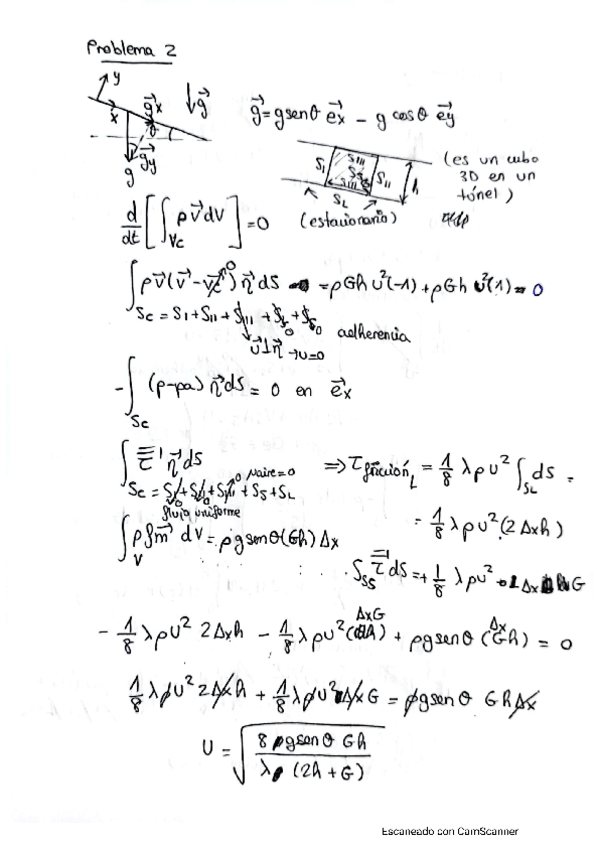 Problema 2
y
x
g⃗x
θ
g⃗y
g
↓g⃗
g⃗ = g senθ e⃗x − g cosθ e⃗y
S_I S_III S_S S_II S_III h
S_L
(es un cubo
3D en un
túnel)
d/dt [∫_Vc ρ v⃗ dV] = 0 (estacionario)
∫_Sc ρv⃗(v⃗ − v⃗c) n⃗ dS = ρGh U²(−1) + ρGh U²(1) = 0
Sc = S_I + S_II + S_III + S_L + S_S adherencia
v⃗⊥n⃗ → v=0
−∫_Sc (p−pa) n⃗ dS = 0 en e⃗x
∫ τ' n⃗ dS ⇒ τ fricción_L = 1/8 λρU² ∫_SL dS =
Sc = S_I + S_II + S_III + S_S + S_L μaire=0
flujo uniforme = 1/8 λρU² (2Δxh)
∫_V ρ f⃗m dV = ρg senθ(Gh)Δx
∫_SS τ' dS = + 1/8 λρU² · Δx G
− 1/8 λρU² 2Δxh − 1/8 λρU² (ΔxG) + ρg senθ (Δx Gh) = 0
1/8 λρU² 2Δxh + 1/8 λρU² ΔxG = ρg senθ GhΔx
U = √(8 ρg senθ Gh / λρ (2h + G))
Escaneado con CamScanner